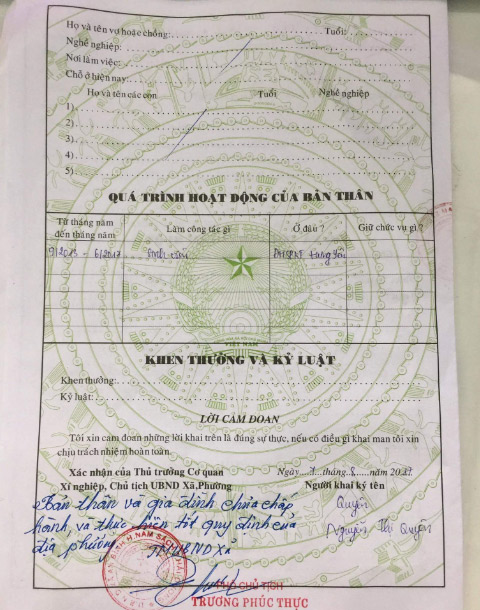 Họ và tên vợ hoặc chồng: Tuổi:
Nghề nghiệp:
Nơi làm việc:
Chỗ ở hiện nay:
Họ và tên các con Tuổi Nghề nghiệp
1)
2)
3)
4)
5)
QUÁ TRÌNH HOẠT ĐỘNG CỦA BẢN THÂN
Từ tháng năm đến tháng năm Làm công tác gì Ở đâu ? Giữ chức vụ gì ?
9/2013 - 6/2017 Sinh viên ĐHSPKT Hưng Yên
VIỆT NAM
KHEN THƯỞNG VÀ KỶ LUẬT
Khen thưởng:
Kỷ luật:
LỜI CAM ĐOAN
Tôi xin cam đoan những lời khai trên là đúng sự thực, nếu có điều gì khai man tôi xin
chịu trách nhiệm hoàn toàn.
Xác nhận của Thủ trưởng Cơ quan Ngày tháng 8 năm
Xí nghiệp, Chủ tịch UBND Xã,Phường Người khai ký tên
Bản thân và gia đình chưa chấp Quyên
hành, và thực hiện tốt quy định của Nguyễn Thị Quyên
địa phương
TM UBND Xã
H.NAM SÁCH
PHÓ CHỦ TỊCH
TRƯƠNG PHÚC THỰC